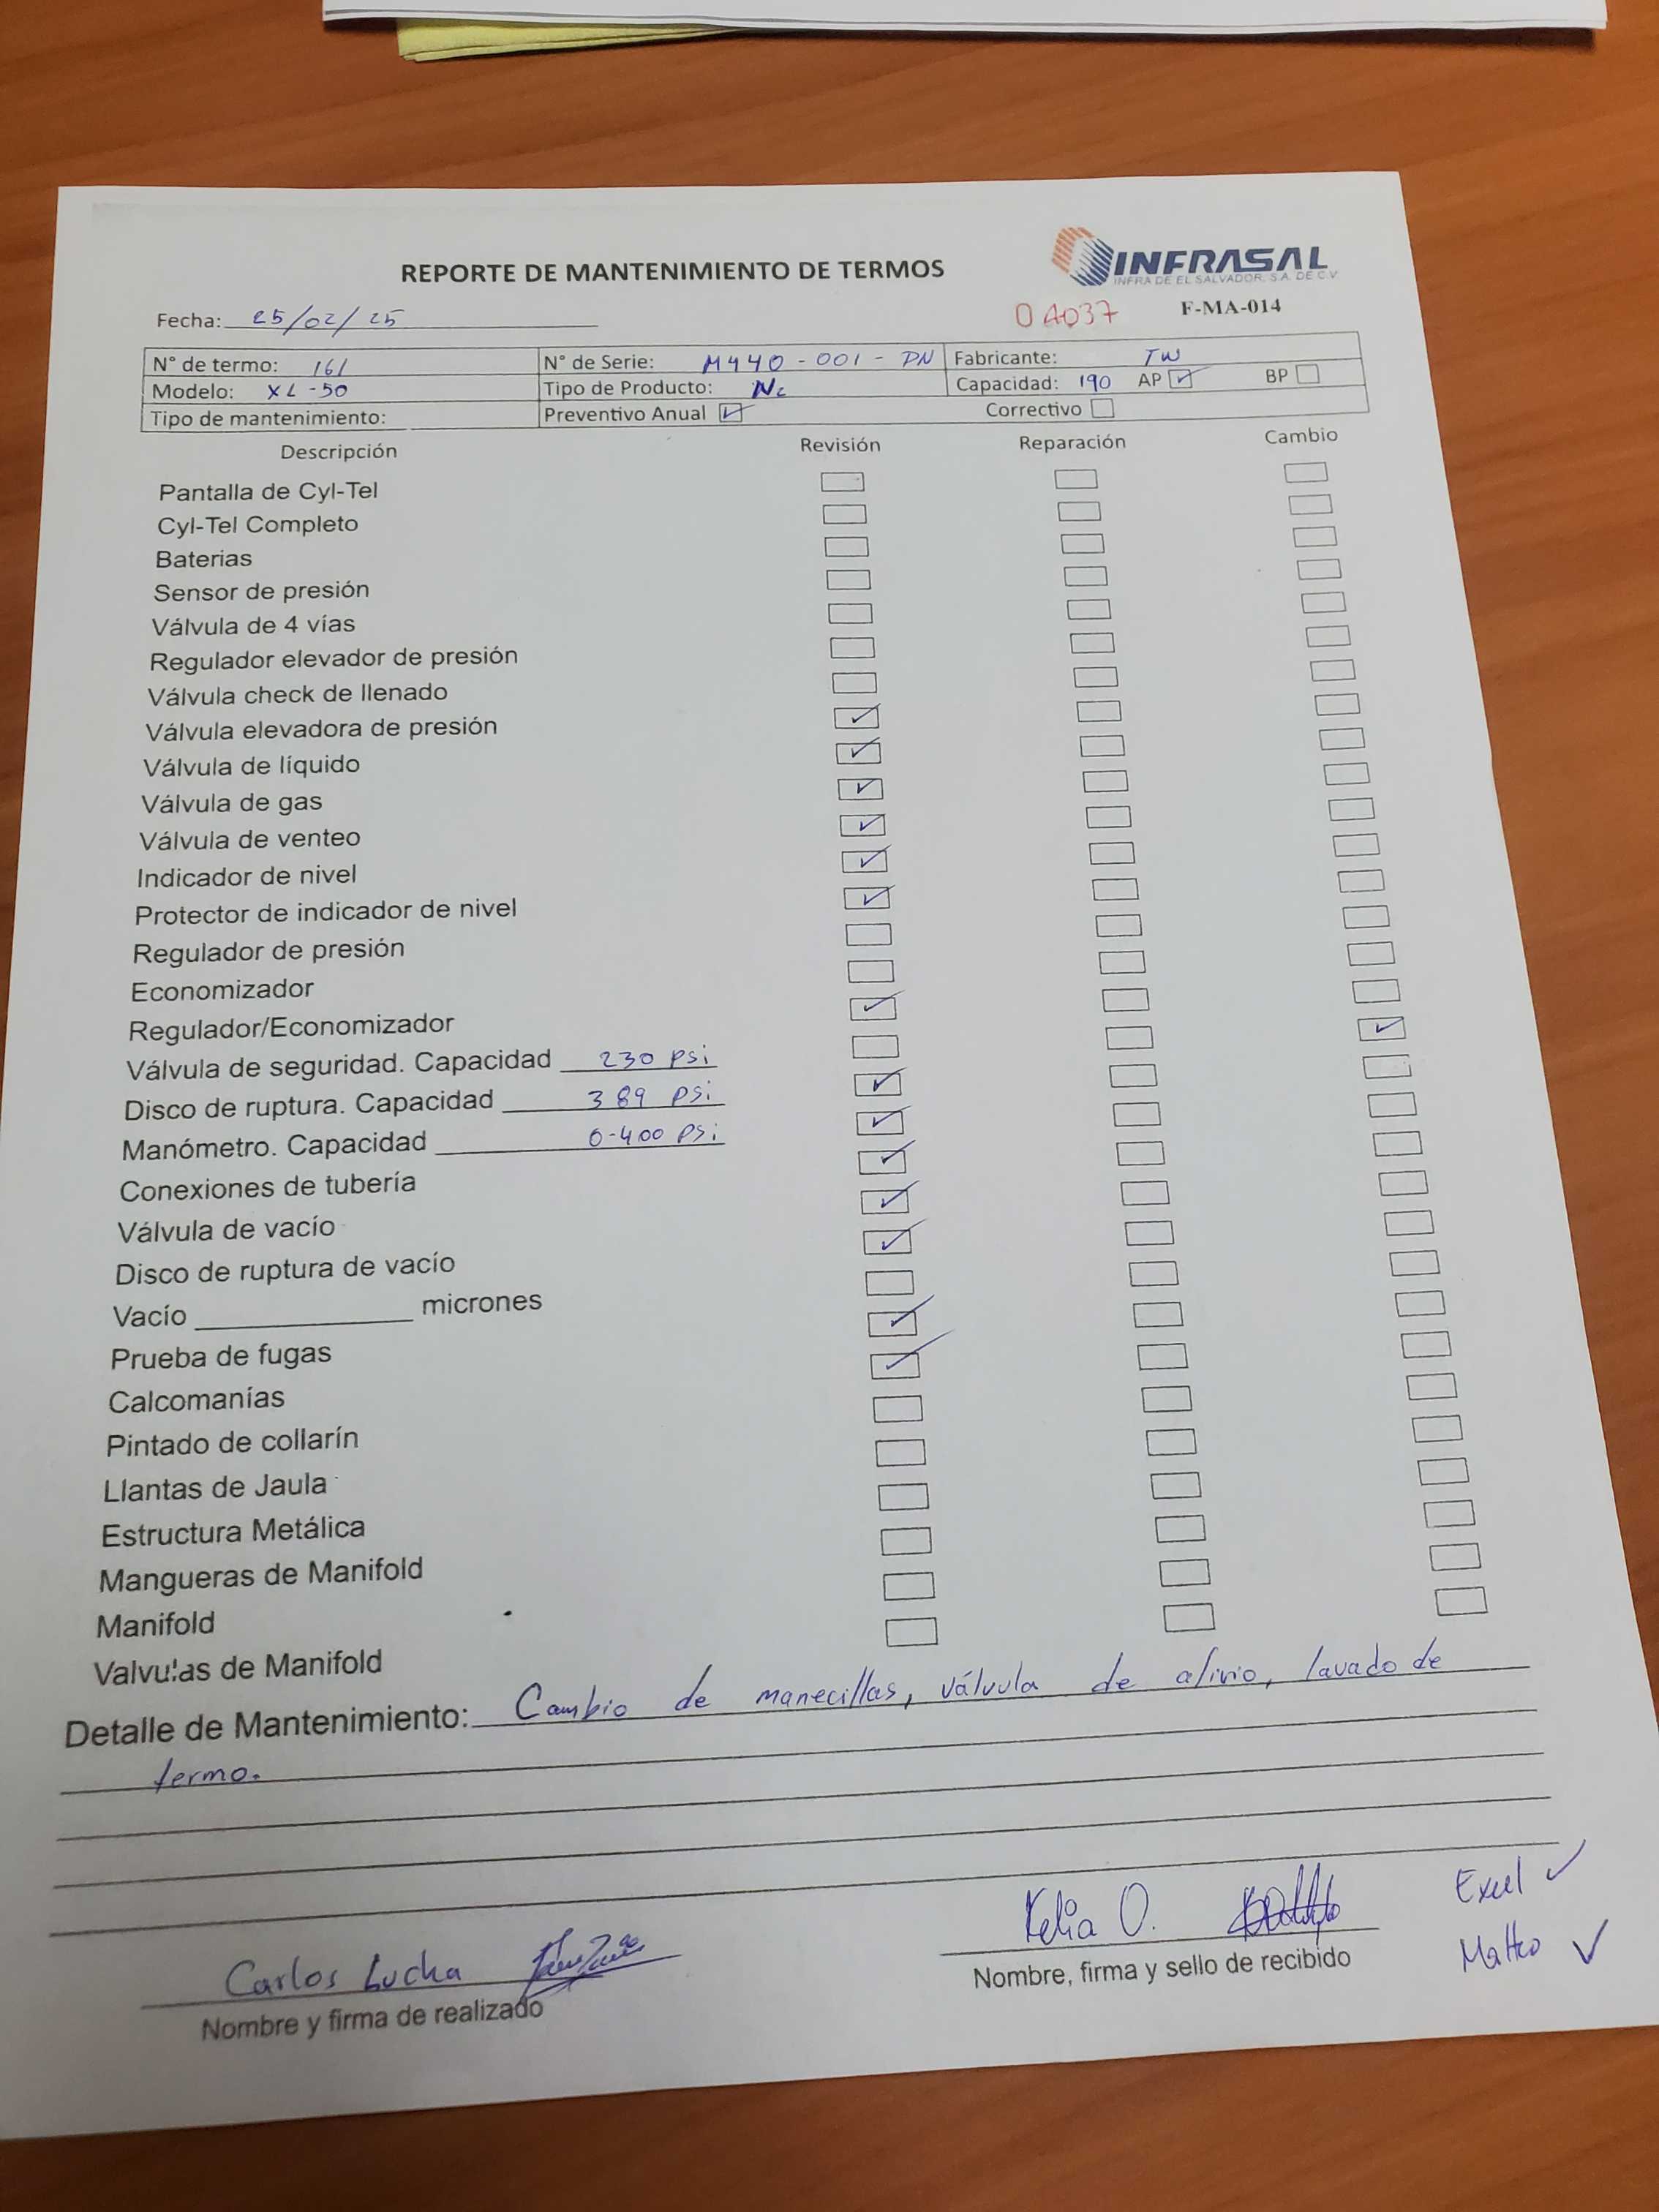 REPORTE DE MANTENIMIENTO DE TERMOS
INFRASAL
INFRA DE EL SALVADOR, S.A. DE C.V.
Fecha: 25/02/25
04037 F-MA-014
N° de termo: 161 N° de Serie: M440-001-DN Fabricante: TW
Modelo: XL-50 Tipo de Producto: N2 Capacidad: 190 AP ☑ BP ☐
Tipo de mantenimiento: Preventivo Anual ☑ Correctivo ☐
Descripción Revisión Reparación Cambio
Pantalla de Cyl-Tel
Cyl-Tel Completo
Baterias
Sensor de presión
Válvula de 4 vías
Regulador elevador de presión
Válvula check de llenado
Válvula elevadora de presión
Válvula de líquido
Válvula de gas
Válvula de venteo
Indicador de nivel
Protector de indicador de nivel
Regulador de presión
Economizador
Regulador/Economizador
Válvula de seguridad. Capacidad 230 psi
Disco de ruptura. Capacidad 389 psi
Manómetro. Capacidad 0-400 psi
Conexiones de tubería
Válvula de vacío
Disco de ruptura de vacío
Vacío ____________ micrones
Prueba de fugas
Calcomanías
Pintado de collarín
Llantas de Jaula
Estructura Metálica
Mangueras de Manifold
Manifold
Valvulas de Manifold
Detalle de Mantenimiento: Cambio de manecillas, válvula de alivio, lavado de
termo.
Carlos Lucha
Nombre y firma de realizado
Kelia O.
Nombre, firma y sello de recibido
Excel ✓
Matteo ✓